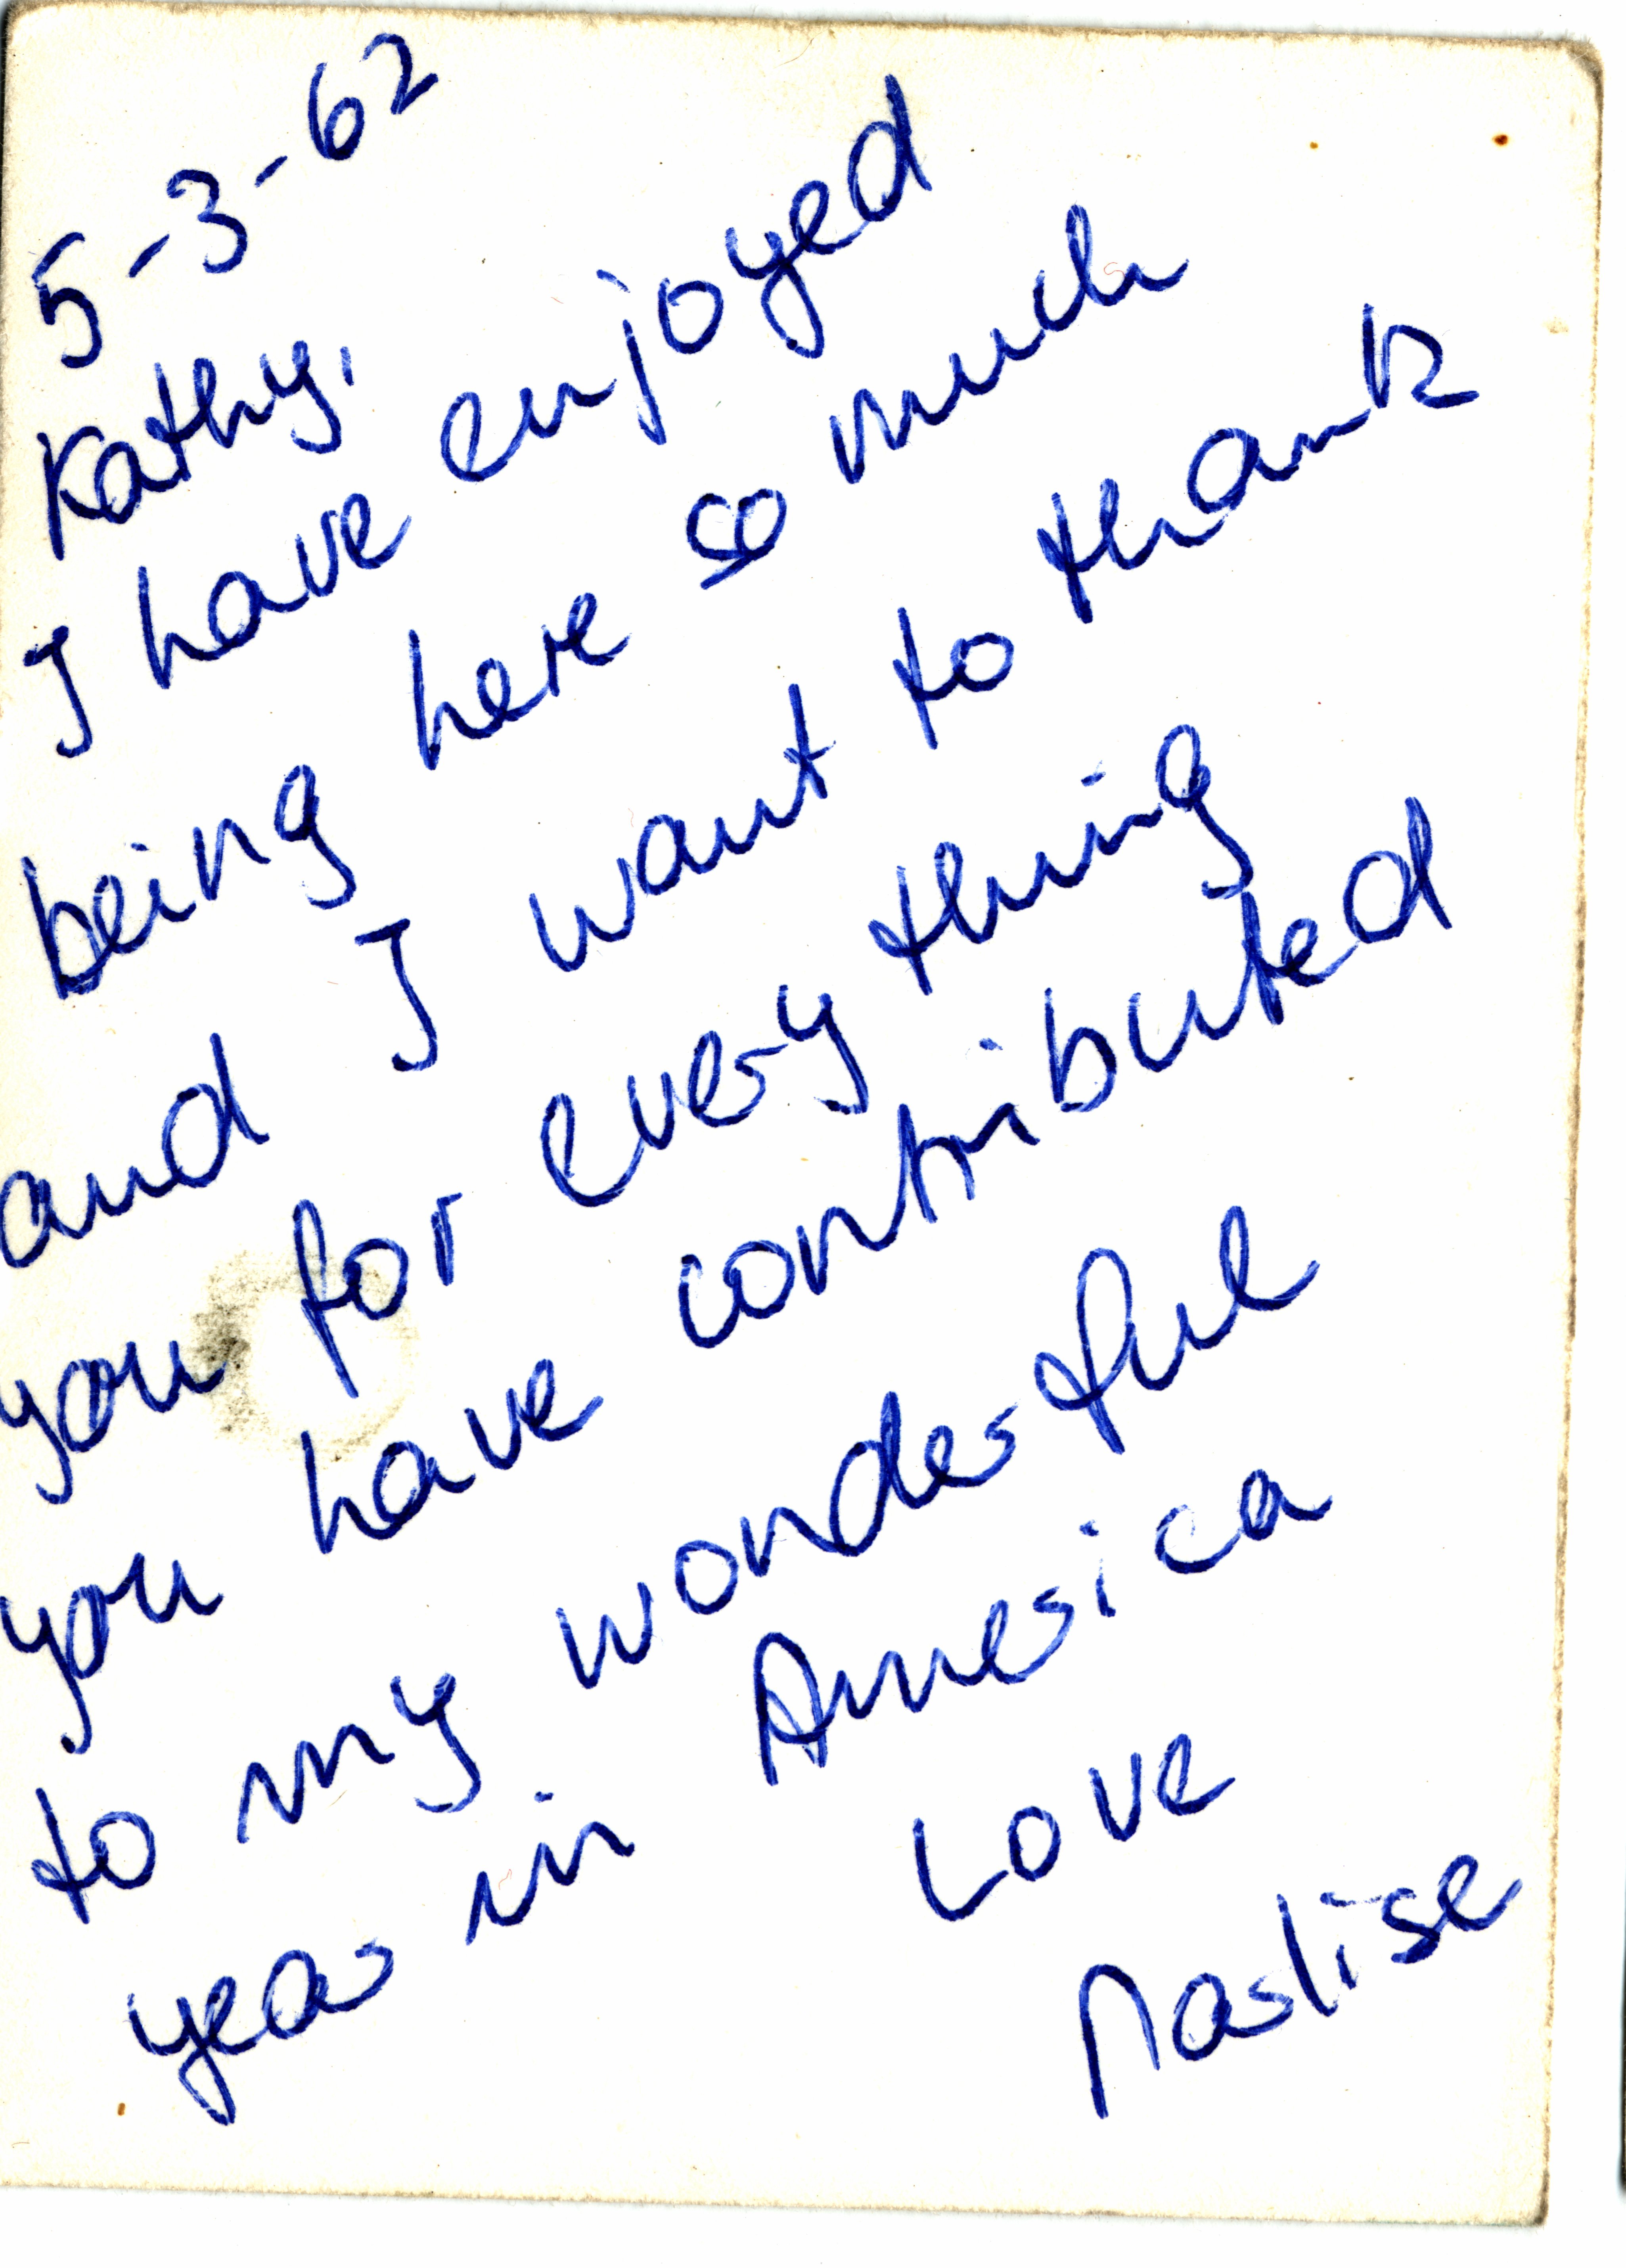 5-3-62
Kathy,
I have enjoyed
being here so much
and I want to thank
you for every thing
you have contributed
to my wonderful
year in America
Love